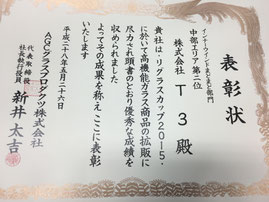 表彰状
インナーウインドまどまど部門
中部エリア第二位
株式会社 T3殿
貴社は・リグラスカップ2015・
に於いて高機能ガラス商品の拡販に
尽力され頭書のとおり優秀な成績を
収められました
よってその成果を称えここに表彰
いたします
平成二十八年五月二十六日
AGCグラスプロダクツ株式会社
代表取締役
社長執行役員 新井太吉